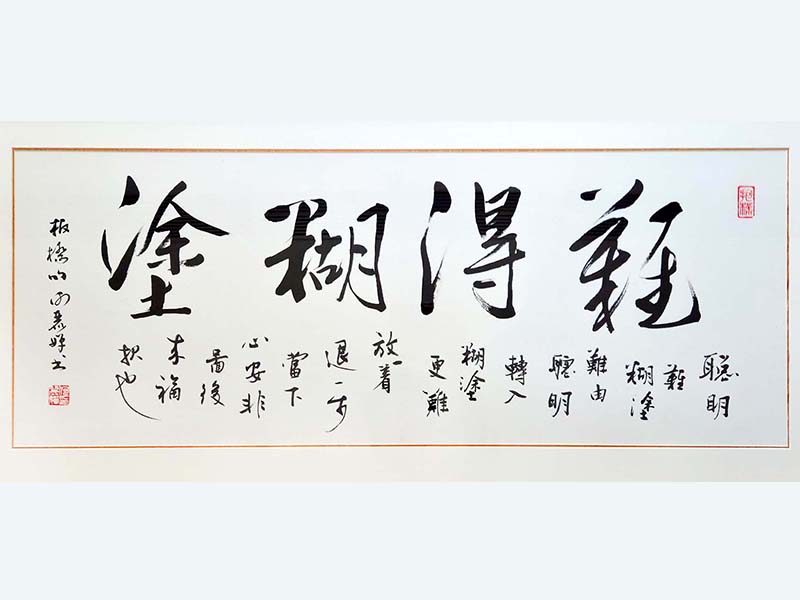 難得糊塗
聰明
難
糊塗
難由
聰明
轉入
糊塗
更難
放一着
退一步
當下
心安非
啚後
来福
報也
板橋句
書